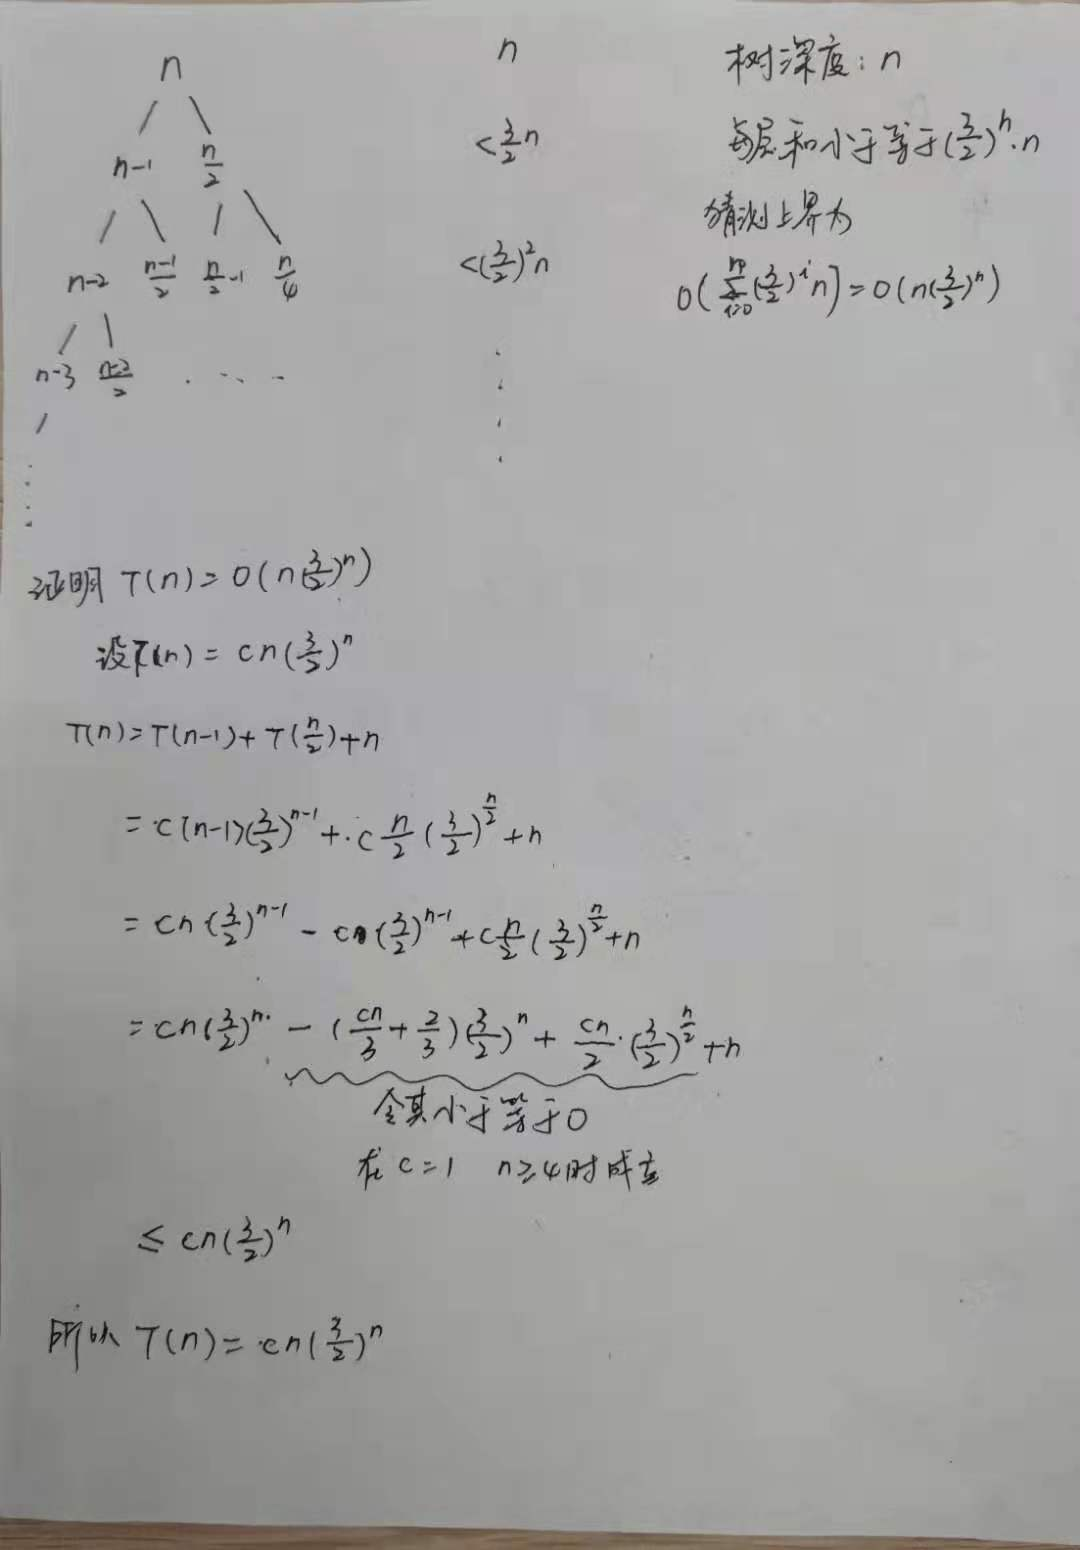 n
n-1 n/2
n-2 (n-1)/2 n/2-1 n/4
n-3 (n-2)/2 . . . . -
n
<3/2n
<(3/2)²n
树深度: n
每层和小于等于(3/2)ⁿ·n
猜测上界为
O(∑ⁿᵢ₌₀(3/2)ⁱn]=O(n(3/2)ⁿ)
证明 T(n)=O(n(3/2)ⁿ)
设T(n)= cn(3/2)ⁿ
T(n)=T(n-1)+T(n/2)+n
=c(n-1)(3/2)^(n-1)+c n/2 (3/2)^(n/2)+n
=cn(3/2)^(n-1) - c(3/2)^(n-1)+c n/2 (3/2)^(n/2)+n
=cn(3/2)ⁿ - (cn/3+2/3)(3/2)ⁿ+ cn/2·(3/2)^(n/2)+n
令其小于等于0
在 c=1 n≥4时成立
≤ cn(3/2)ⁿ
所以 T(n)= cn(3/2)ⁿ